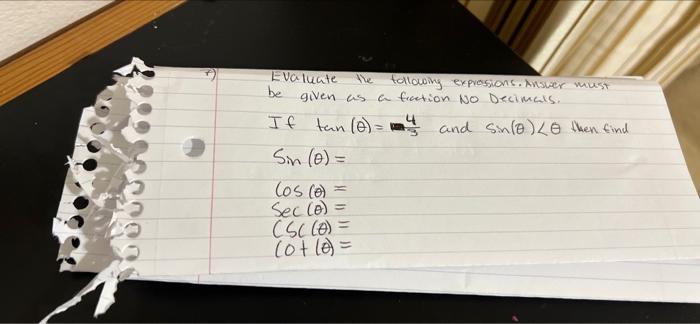 7)
Evaluate the following expressions. Answer must
be given as a fraction No Decimals.
If tan (θ) = -4/3 and sin(θ)<θ then find
Sin (θ) =
Cos (θ) =
Sec (θ) =
CSC (θ) =
Cot (θ) =